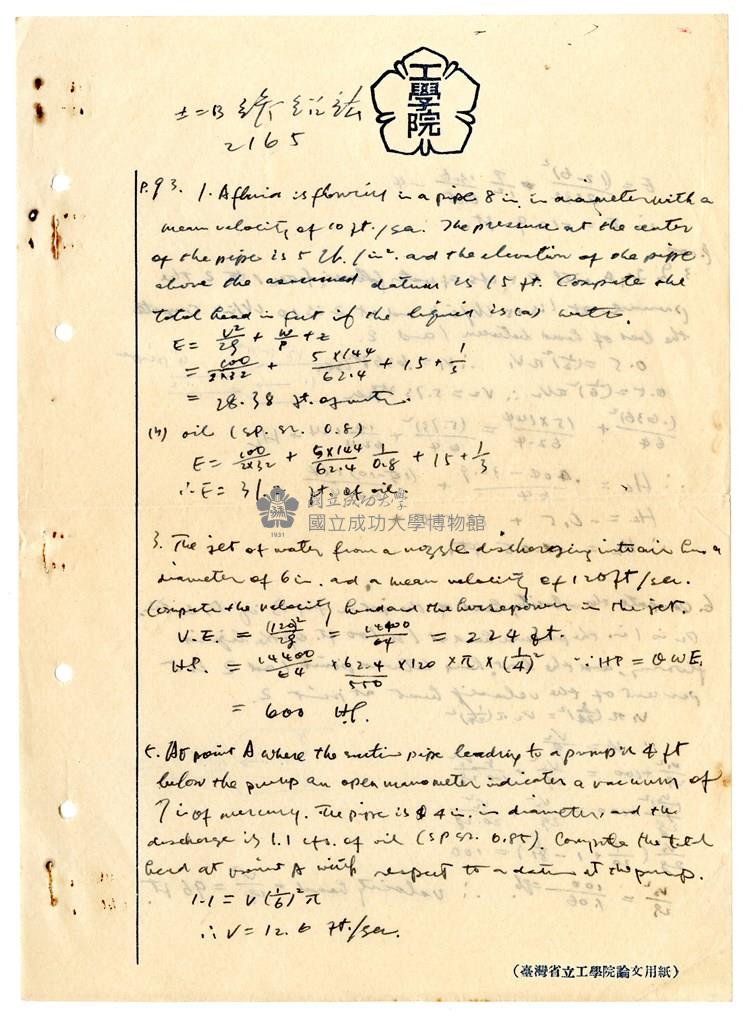 工學院
土二B
2165
P.93. 1. A fluid is flowing in a pipe 8 in. in diameter with a
mean velocity of 10 ft./sec. The pressure at the center
of the pipe is 5 lb./in². and the elevation of the pipe
above the assumed datum is 15 ft. Compute the
total head in feet if the liquid is (a) water.
E = V²/2g + w/p + z
= 100/2×32 + 5×144/62.4 + 15 + 1/3
= 28.38 ft. of water.
(b) oil (sp. gr. 0.8)
E = 100/2×32 + 5×144/62.4 1/0.8 + 15 + 1/3
∴ E = 31. ft. of oil.
國立成功大學
國立成功大學博物館
1931
3. The jet of water from a nozzle discharging into air has a
diameter of 6 in. and a mean velocity of 120 ft/sec.
Compute the velocity head and the horsepower in the jet.
V.E. = (120)²/2g = 14400/64 = 224 ft.
H.P. = 14400/64 × 62.4/550 × 120 × π × (1/4)² ∵ HP = QWE.
= 600 H.P.
5. At point A where the suction pipe leading to a pump is 4 ft
below the pump an open manometer indicates a vacuum of
7 in of mercury. The pipe is 4 in. in diameter, and the
discharge is 1.1 cfs. of oil (sp gr. 0.85). Compute the total
head at point A with respect to a datum at the pump.
1.1 = V(1/6)²π
∴ V = 12.6 ft./sec.
(臺灣省立工學院論文用紙)